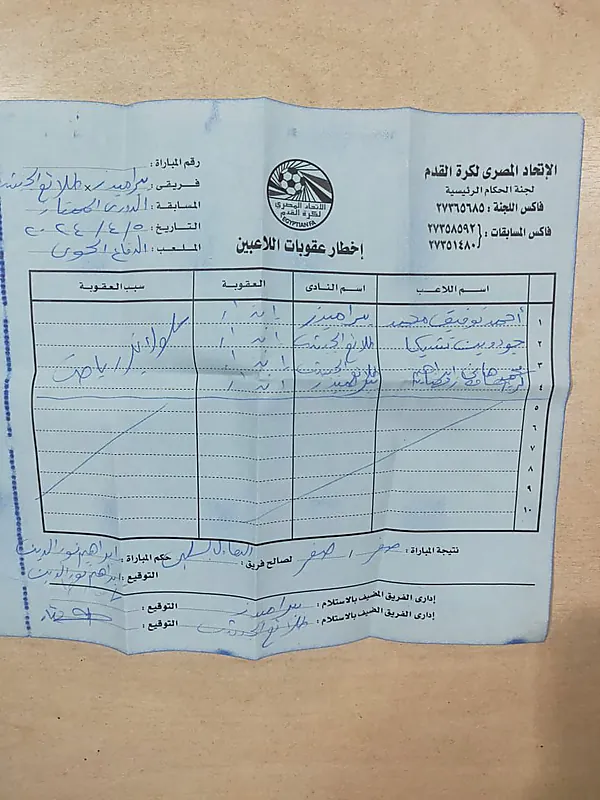 الإتحاد المصرى لكرة القدم
لجنة الحكام الرئيسية
فاكس اللجنة : ٢٧٣٦٥٦٨٥
فاكس المسابقات : ٢٧٣٥٨٥٩٢
٢٧٣٥١٤٨٠
الإتحاد المصرى
لكرة القدم
EGYPTIAN FA
إخطار عقوبات اللاعبين
رقم المباراة :
فريقى : بيراميدز × طلائع الجيش
المسابقة : الدورى الممتاز
التاريخ : ٥ / ٤ / ٢٠٢٤
الملعب : الدفاع الجوى
اسم اللاعب اسم النادى العقوبة سبب العقوبة
١ أحمد توفيق محمد بيراميدز إنذار
٢ جودوين تشيكا طلائع الجيش إنذار
٣ طلائع الجيش إنذار
٤ بيراميدز إنذار
سلوك غير رياضى
٥
٦
٧
٨
٩
١٠
نتيجة المباراة : صفر / صفر لصالح فريق : التعادل السلبى حكم المباراة : ابراهيم نور الدين
التوقيع : ابراهيم نور الدين
إدارى الفريق المضيف بالاستلام : بيراميدز التوقيع :
إدارى الفريق الضيف بالاستلام : طلائع الجيش التوقيع :